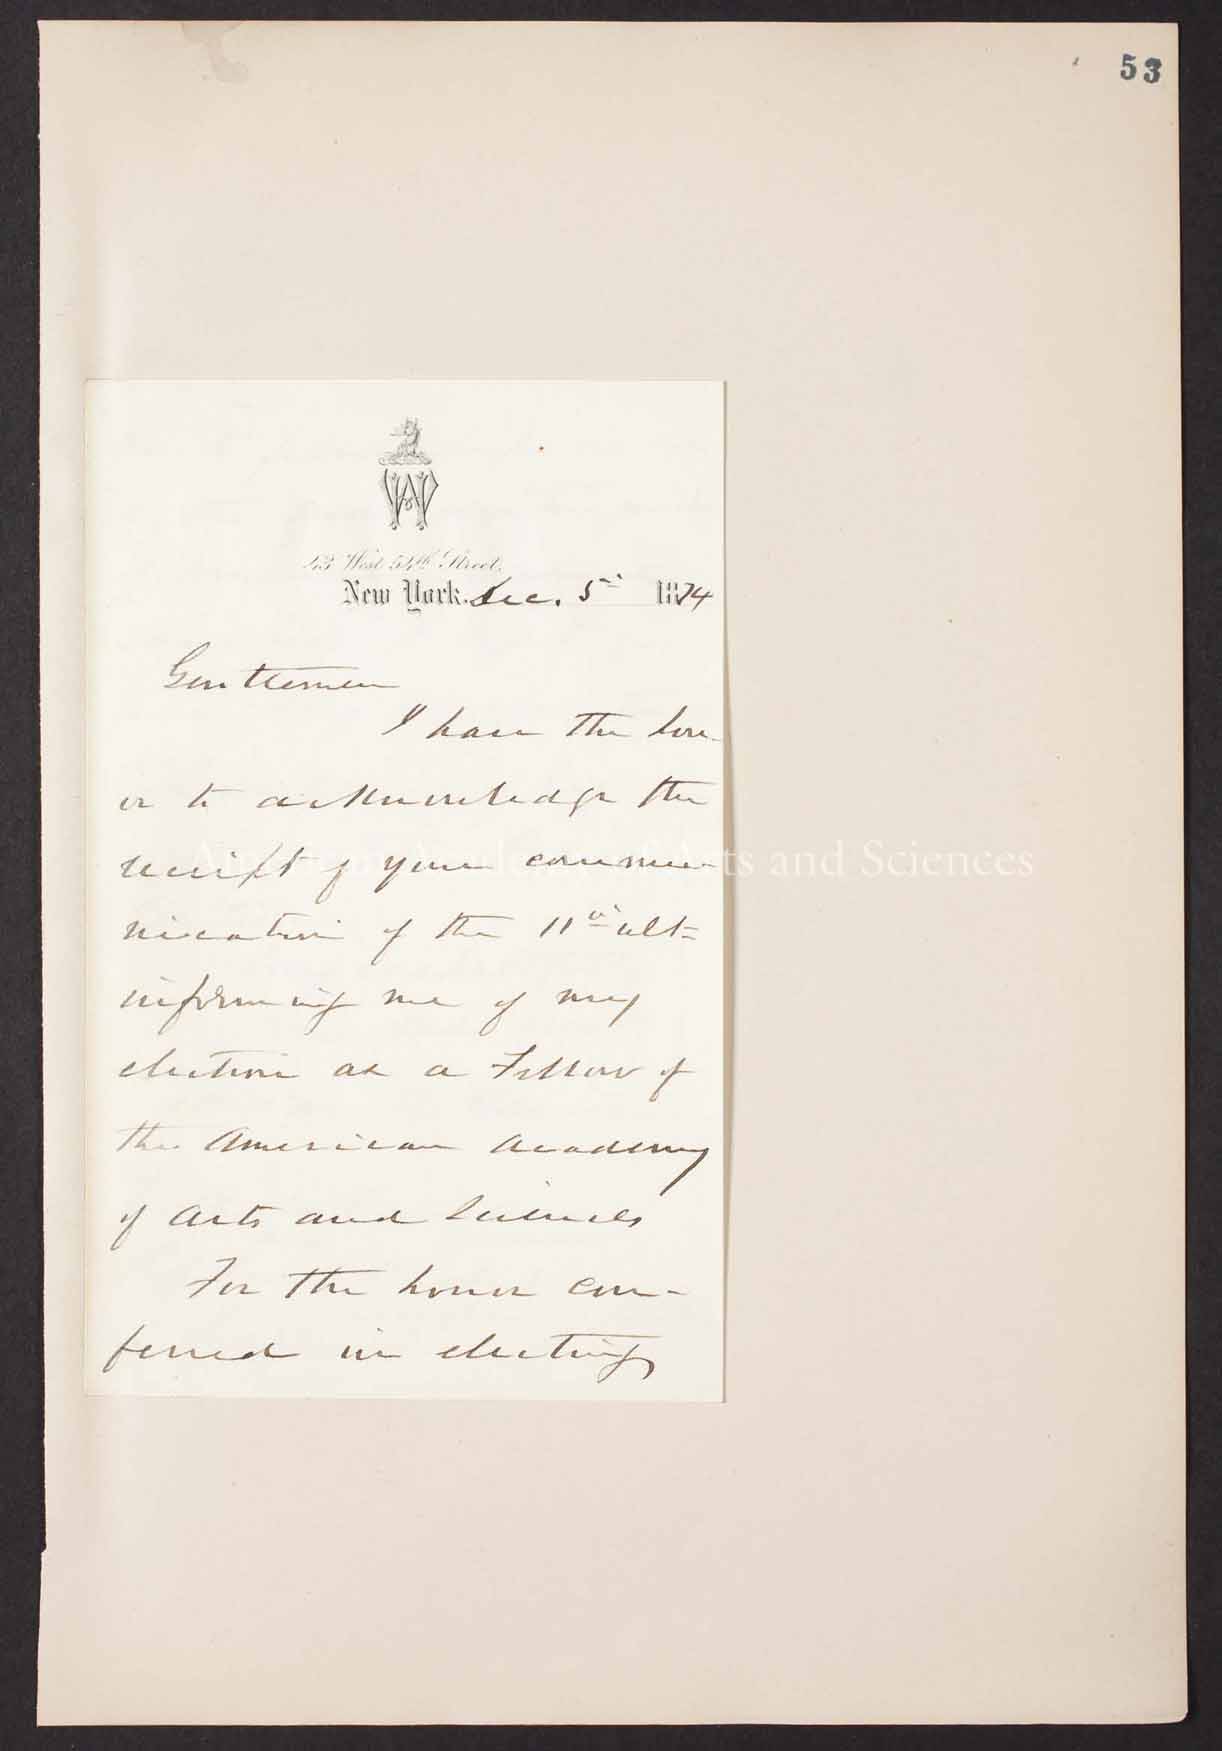 53
43 West 54th Street,
New York. Dec. 5th 1874
Gentlemen
I have the hon-
or to acknowledge the
receipt of your commu-
nication of the 11th ult=
informing me of my
election as a Fellow of
the American Academy
of Arts and Sciences
For the honor con-
ferred in electing
American Academy of Arts and Sciences